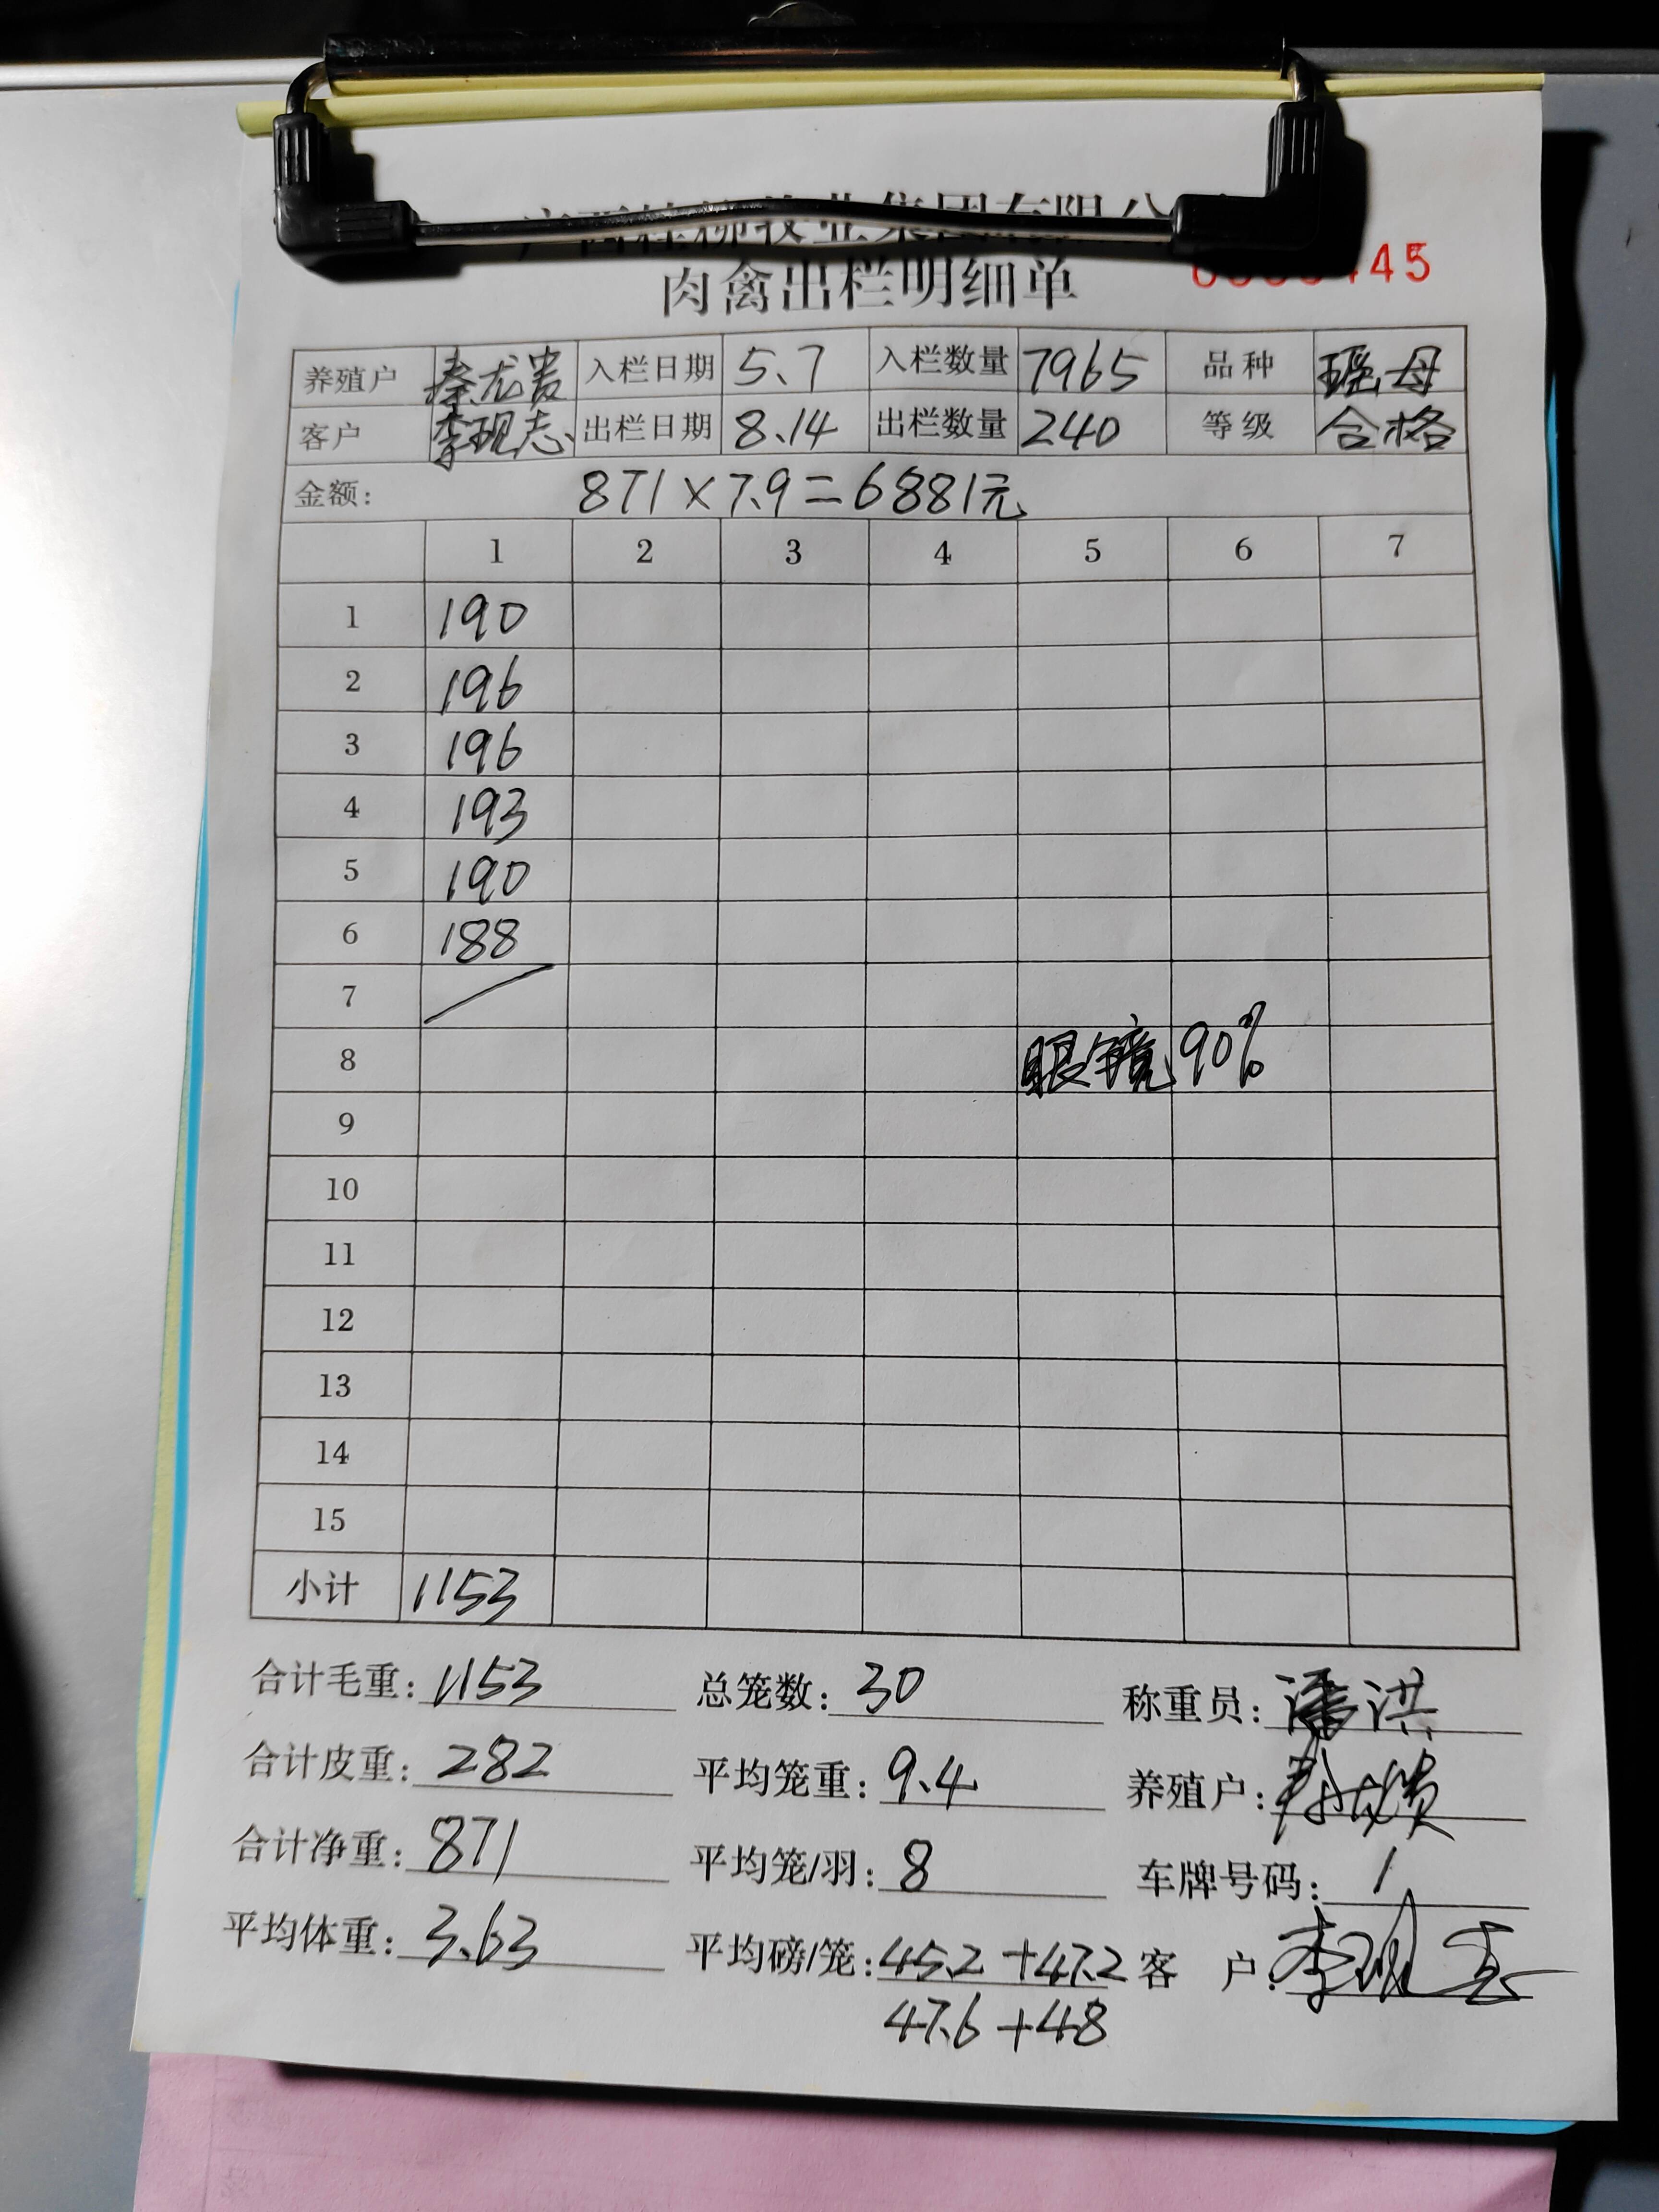 广西桂柳牧业集团有限公
肉禽出栏明细单
45
养殖户 秦龙贵 入栏日期 5.7 入栏数量 7965 品种 瑶母
客户 李现志 出栏日期 8.14 出栏数量 240 等级 合格
金额: 871×7.9=6881元
1 2 3 4 5 6 7
1 190
2 196
3 196
4 193
5 190
6 188
7
8 眼镜90%
9
10
11
12
13
14
15
小计 1153
合计毛重: 1153 总笼数: 30 称重员: 潘洪
合计皮重: 282 平均笼重: 9.4 养殖户:
合计净重: 871 平均笼/羽: 8 车牌号码: 1
平均体重: 3.63 平均磅/笼: 45.2+47.2 客 户: 李现志
47.6+48